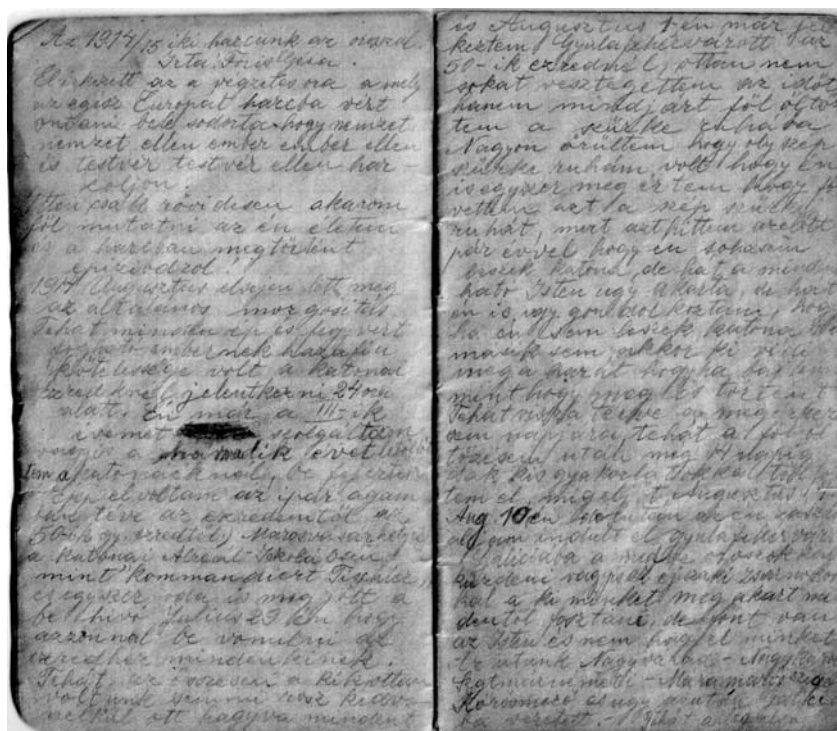 Az 1914/15 iki harcunk az orosszal
Irta
Elérkezett az a végzetes óra a mely
az egész Európát harcba vért
ontani bele sodorta hogy nemzet
nemzet ellen ember ember ellen
is testvér testvér ellen har-
coljon.
Itten csak rövidesen akarom
föl mutatni az én életem
és a harcban megtörtént
epizódról.
1914 Augusztus elsején lött meg
az általános mozgositás
Tehát minden ép és fegyvert
fogható embernek hazafiui
kötelessége volt a katonai
ezredeknél jelentkezni 24 óra
alatt. Én már a III-ik
évemet szolgáltam
a harmadik évet
tem a katonáéknál, be
Éppel voltam az ipar
téve az ezredemtől az
50-ik gy. ezredtől) Marosvásárhelyre
a katonai Alreál Iskolában
mint kommandiert
és egyszer oda is meg jött a
be hivó Julius 29 kén hogy
azonnal be vonulni az
ezredhez mindenkinek.
Tehát az összesen a kik ottan
voltunk
nélkül ott hagyva mindent
és Augusztus 1-én már
keztem Gyulafehérvárott
50-ik ezrednél, ottan nem
sokat vesztegettem az időt
hanem mindjárt föl öltöz
tem a szürke ruhába
Nagyon örültem hogy oly szép
szürke ruhám volt hogy én
is egyszer meg értem hogy
vettem azt a szép szürke
ruhát, mert azt hittem ezelőtt
pár évvel hogy én sohasem
leszek katona, de hát a minden
ható Isten ugy akarta, de hát
én is ugy gondolkoztam, hogy
ha én sem leszek katona
másik sem, akkor ki védi
meg a hazát hogyha
mint hogy meg is történt
Tehát vissza térve
sem napjára, tehát a föl öl
tözésem után még
csak kis gyakorlatokkal töl
tem el, Augusztus
Aug 10 én délután az én
indult el Gyulafehérvár
Galiciába a
küzdeni vagyis
a ki minket meg akart min
dentől fosztani, de fönt van
az Isten és nem hagy el minket
Az utunk Nagyvárad - Nagykároly
Szatmárnémeti - Máramarossziget
Körösmező és ugy
vezetett. - Tehát